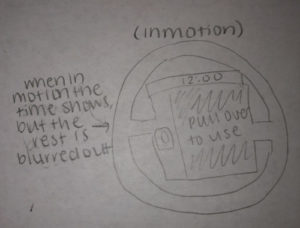 (inmotion)
when in
motion the
time shows,
but the
rest is
blurred out
12:00
pull over
to use